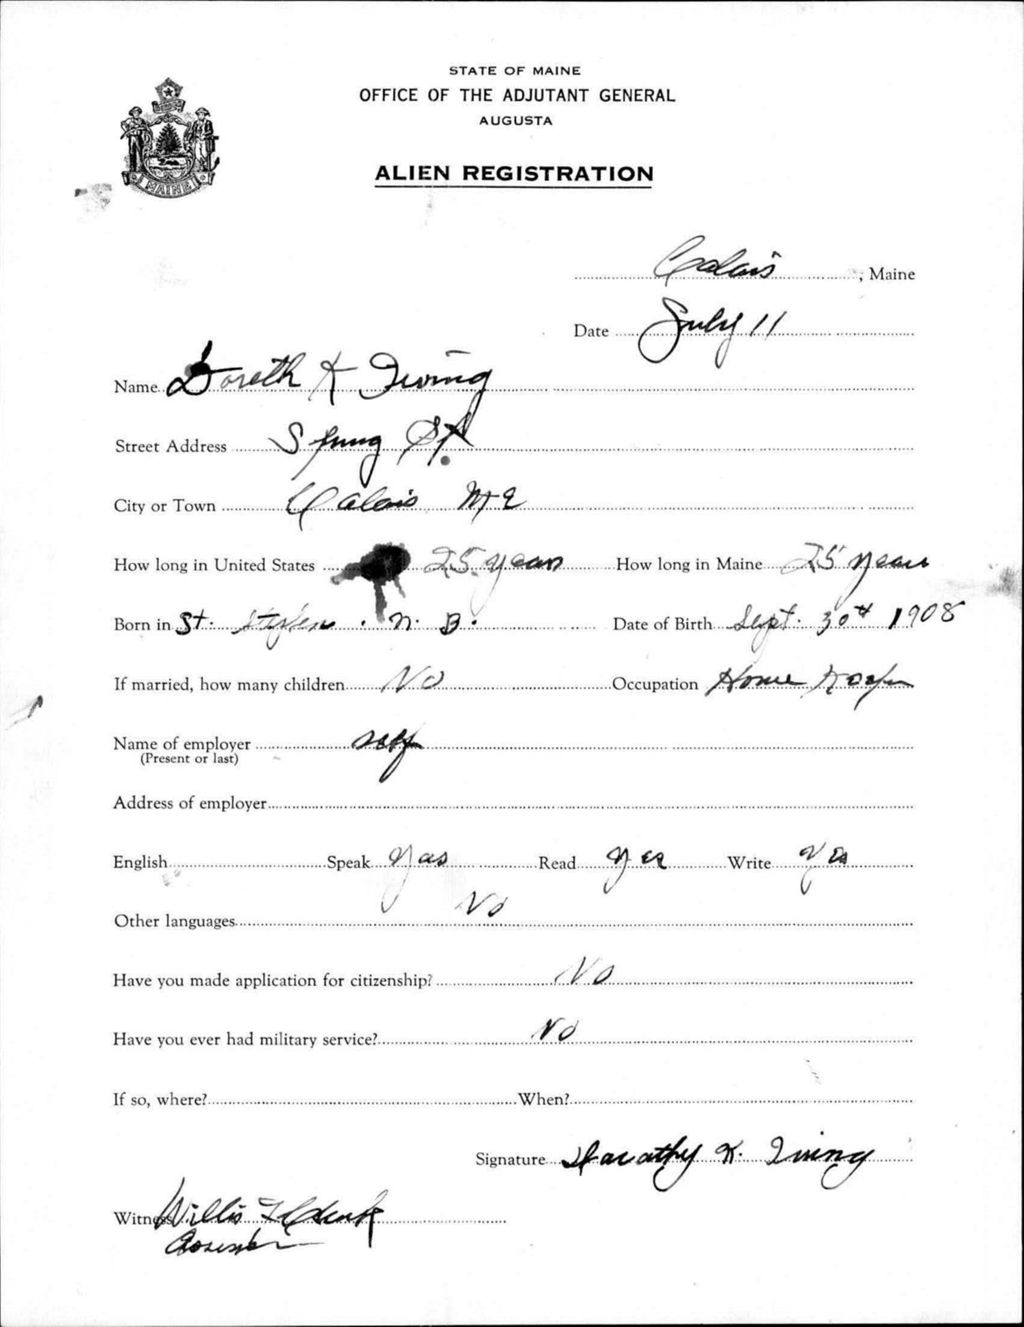 STATE OF MAINE
OFFICE OF THE ADJUTANT GENERAL
AUGUSTA
MAINE
ALIEN REGISTRATION
Calais, Maine
Date July 11
Name Doreth K Irving
Street Address Spring St.
City or Town Calais ME
How long in United States 25 years How long in Maine 25 years
Born in St. Stephen. N. B. Date of Birth Sept. 30th 1908
If married, how many children No Occupation Home
Name of employer self
(Present or last)
Address of employer
English Speak Yes Read Yes Write Yes
Other languages No
Have you made application for citizenship? No
Have you ever had military service? No
If so, where? When?
Signature Dorathy K. Irving
Witness Willis